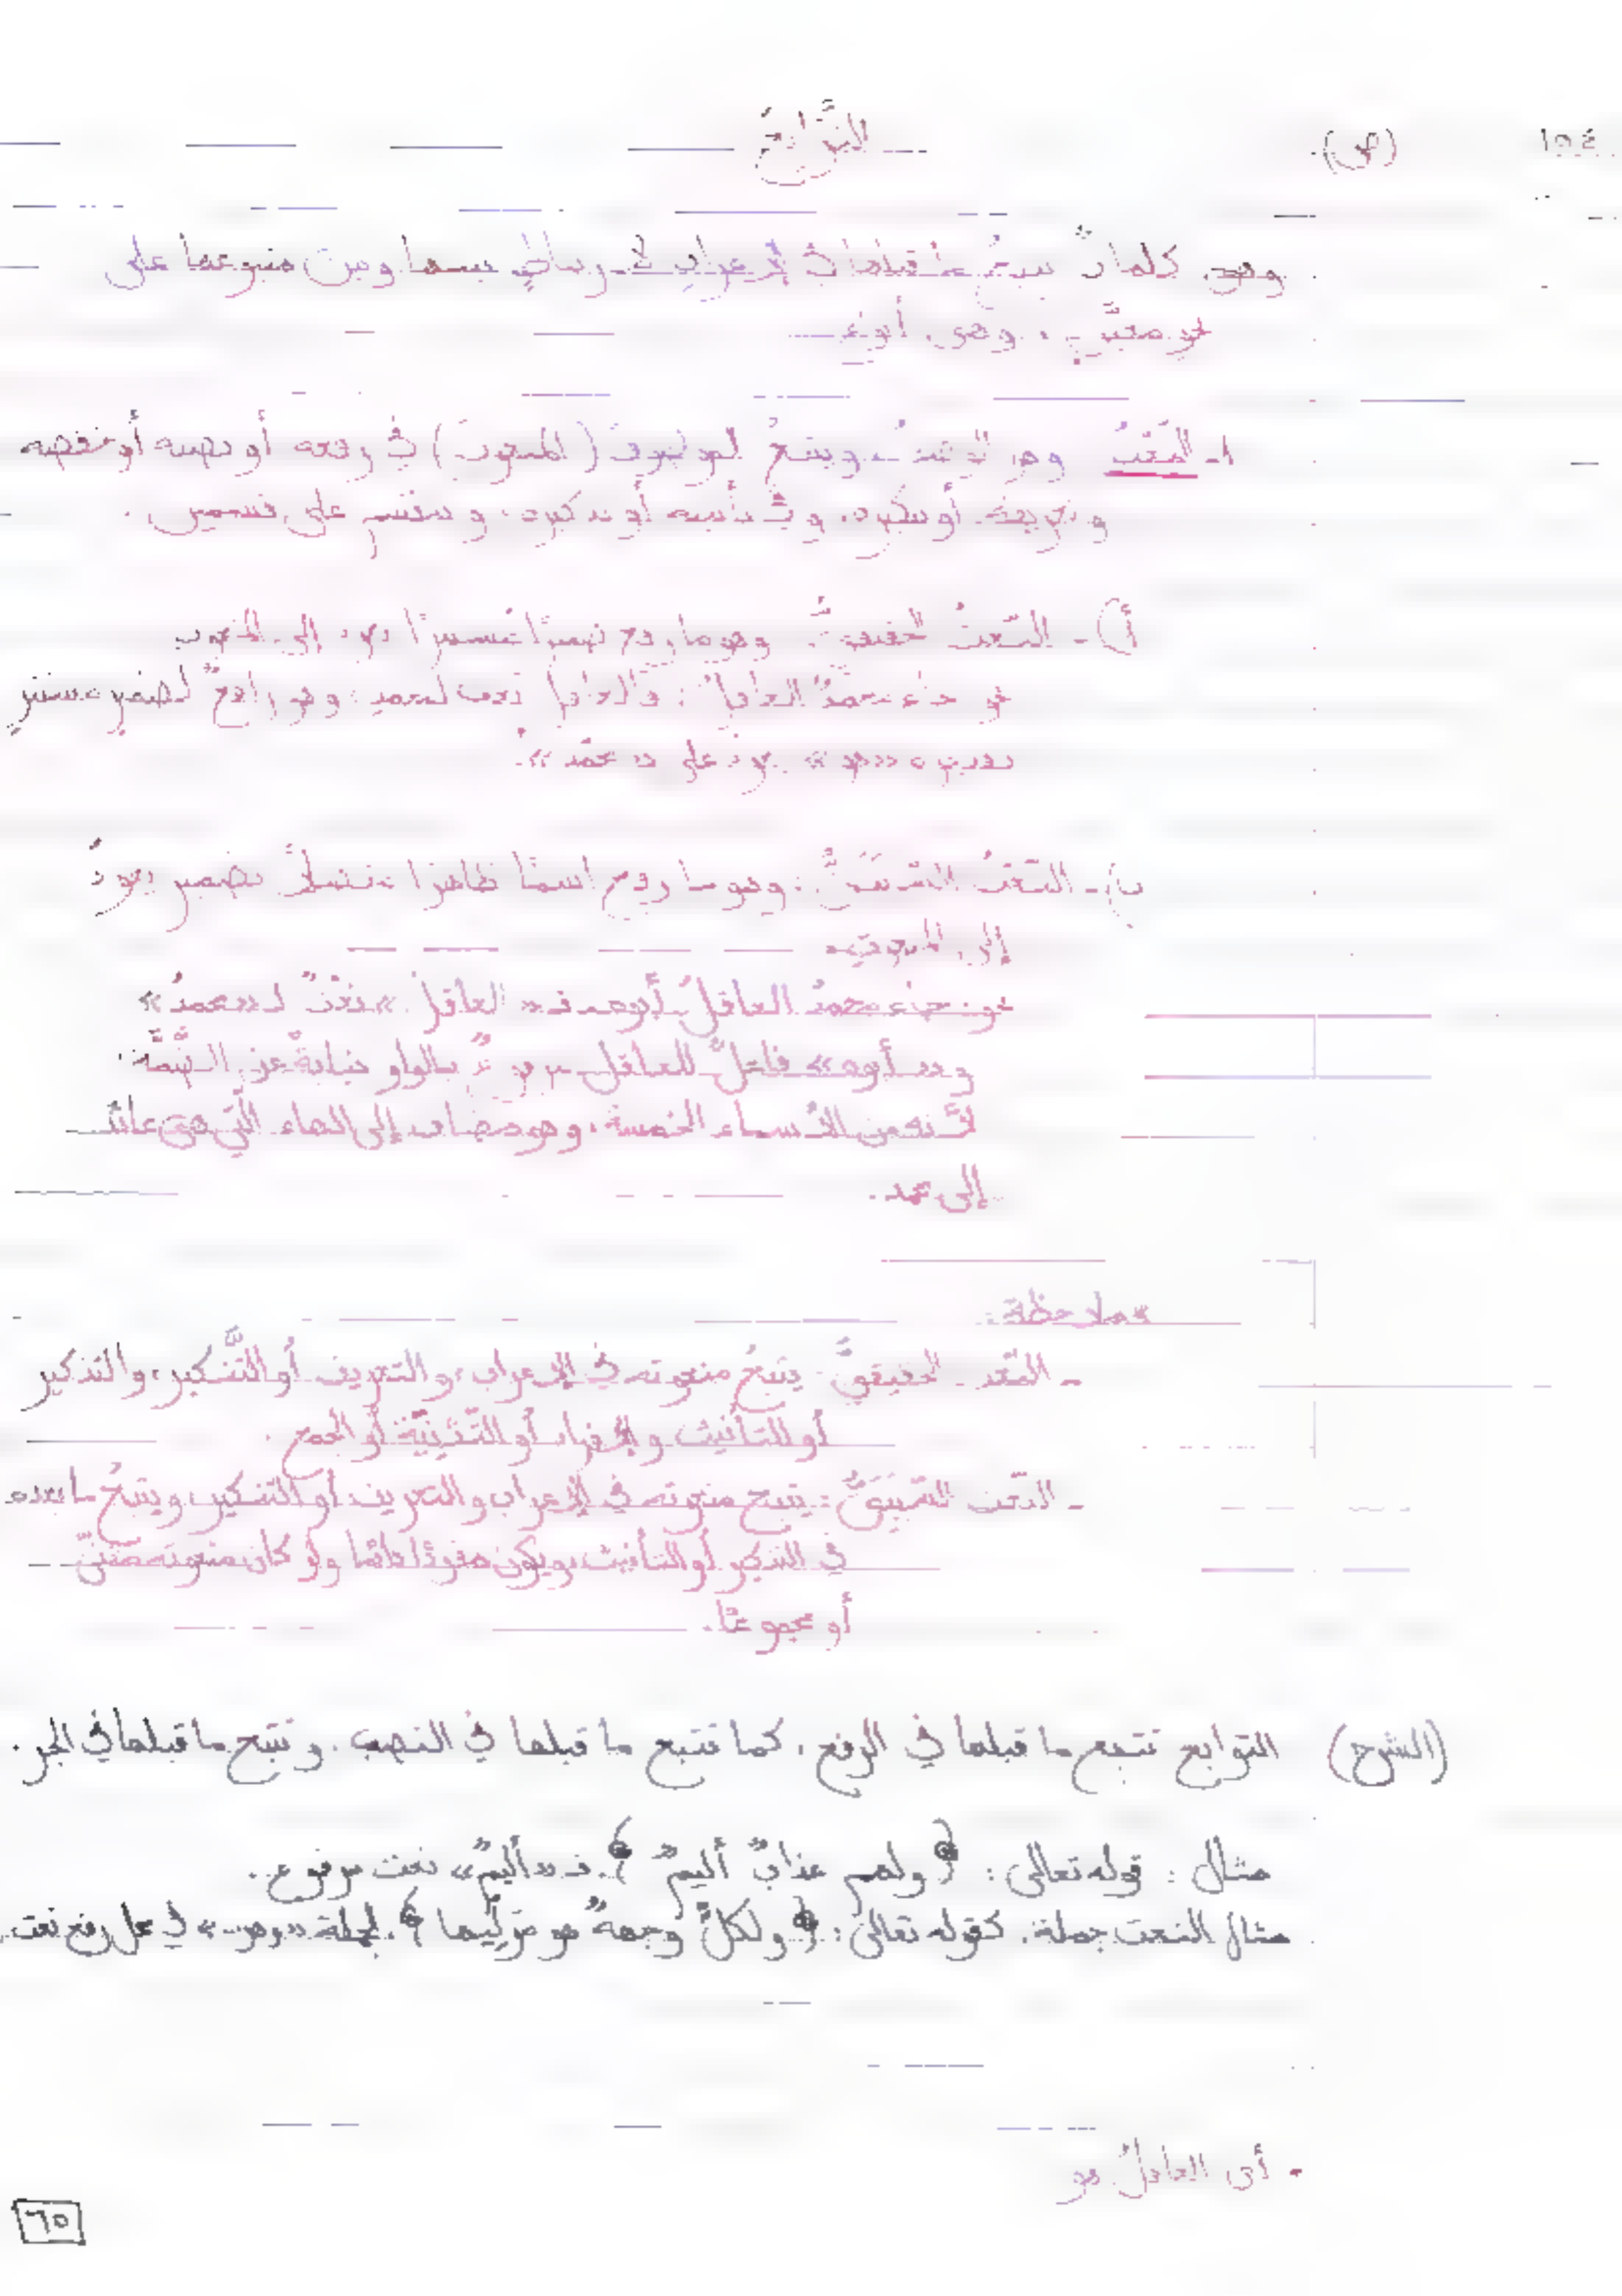 ١٥٤ (ص) التَّوابعُ
وهي كلماتٌ تتبعُ ما قبلها في الإعراب لارتباطٍ بينها وبين متبوعها على
نحو معيَّن، وهي أنواع
١- النَّعتُ وهو ويتبعُ الموصوف (المنعوت) في رفعه أو نصبه أو خفضه
و تعريفه أو تنكيره، وفي تأنيثه أو تذكيره، وينقسم على قسمين.
أ)- النَّعتُ الحقيقيُّ: وهو ما رفع ضميرًا مستترًا يعود إلى المنعوت
نحو جاء محمدٌ العاقلُ: فالعاقل نعت لمحمد، وهو رافعٌ لضمير مستتر
تقديره «هو» يعود على «محمّد».
ب)- النَّعتُ السَّبَبيُّ: وهو ما رفع اسمًا ظاهرًا متصلاً بضمير يعودُ
إلى المنعوت
نحو: جاء محمدٌ العاقلُ أبوه فـ«العاقل» نعْتٌ لـ«محمدٌ»
و«أبوه» فاعلٌ للعاقل مرفوعٌ بالواو نيابةً عن الضَّمَّة
لأنه من الأسماء الخمسة، وهو مضاف إلى الهاء الَّتي هي عائد
إلى محمد.
ملاحظة:
- النَّعت الحقيقيُّ: يتبعُ منعوته في الإعراب، والتعريف أو التَّنكير، والتذكير
أو التأنيث والإفراد أو التَّثنيّة أو الجمع.
- النَّعت السَّبَبيُّ: يتبع منعوته في الإعراب والتعريف أو التنكير ويتبعُ ما بعده
في التذكير أو التأنيث ويكون مفردًا دائمًا ولو كان منعوته مثنىً
أو مجموعًا.
(الشرح) التوابع تتبع ما قبلها في الرفع، كما تتبع ما قبلها في النصب، و تتبع ما قبلها في الجر.
مثال: قوله تعالى: ﴿ولهم عذابٌ أليمٌ﴾. فـ«أليمٌ» نعت مرفوع.
مثال النعت جملة: كقوله تعالى: ﴿ولكلٍّ وجهةٌ هو مُوَلِّيها﴾. لجملة «هو..» في محل رفع نعت.
- أي العاقلُ هو
٦٥